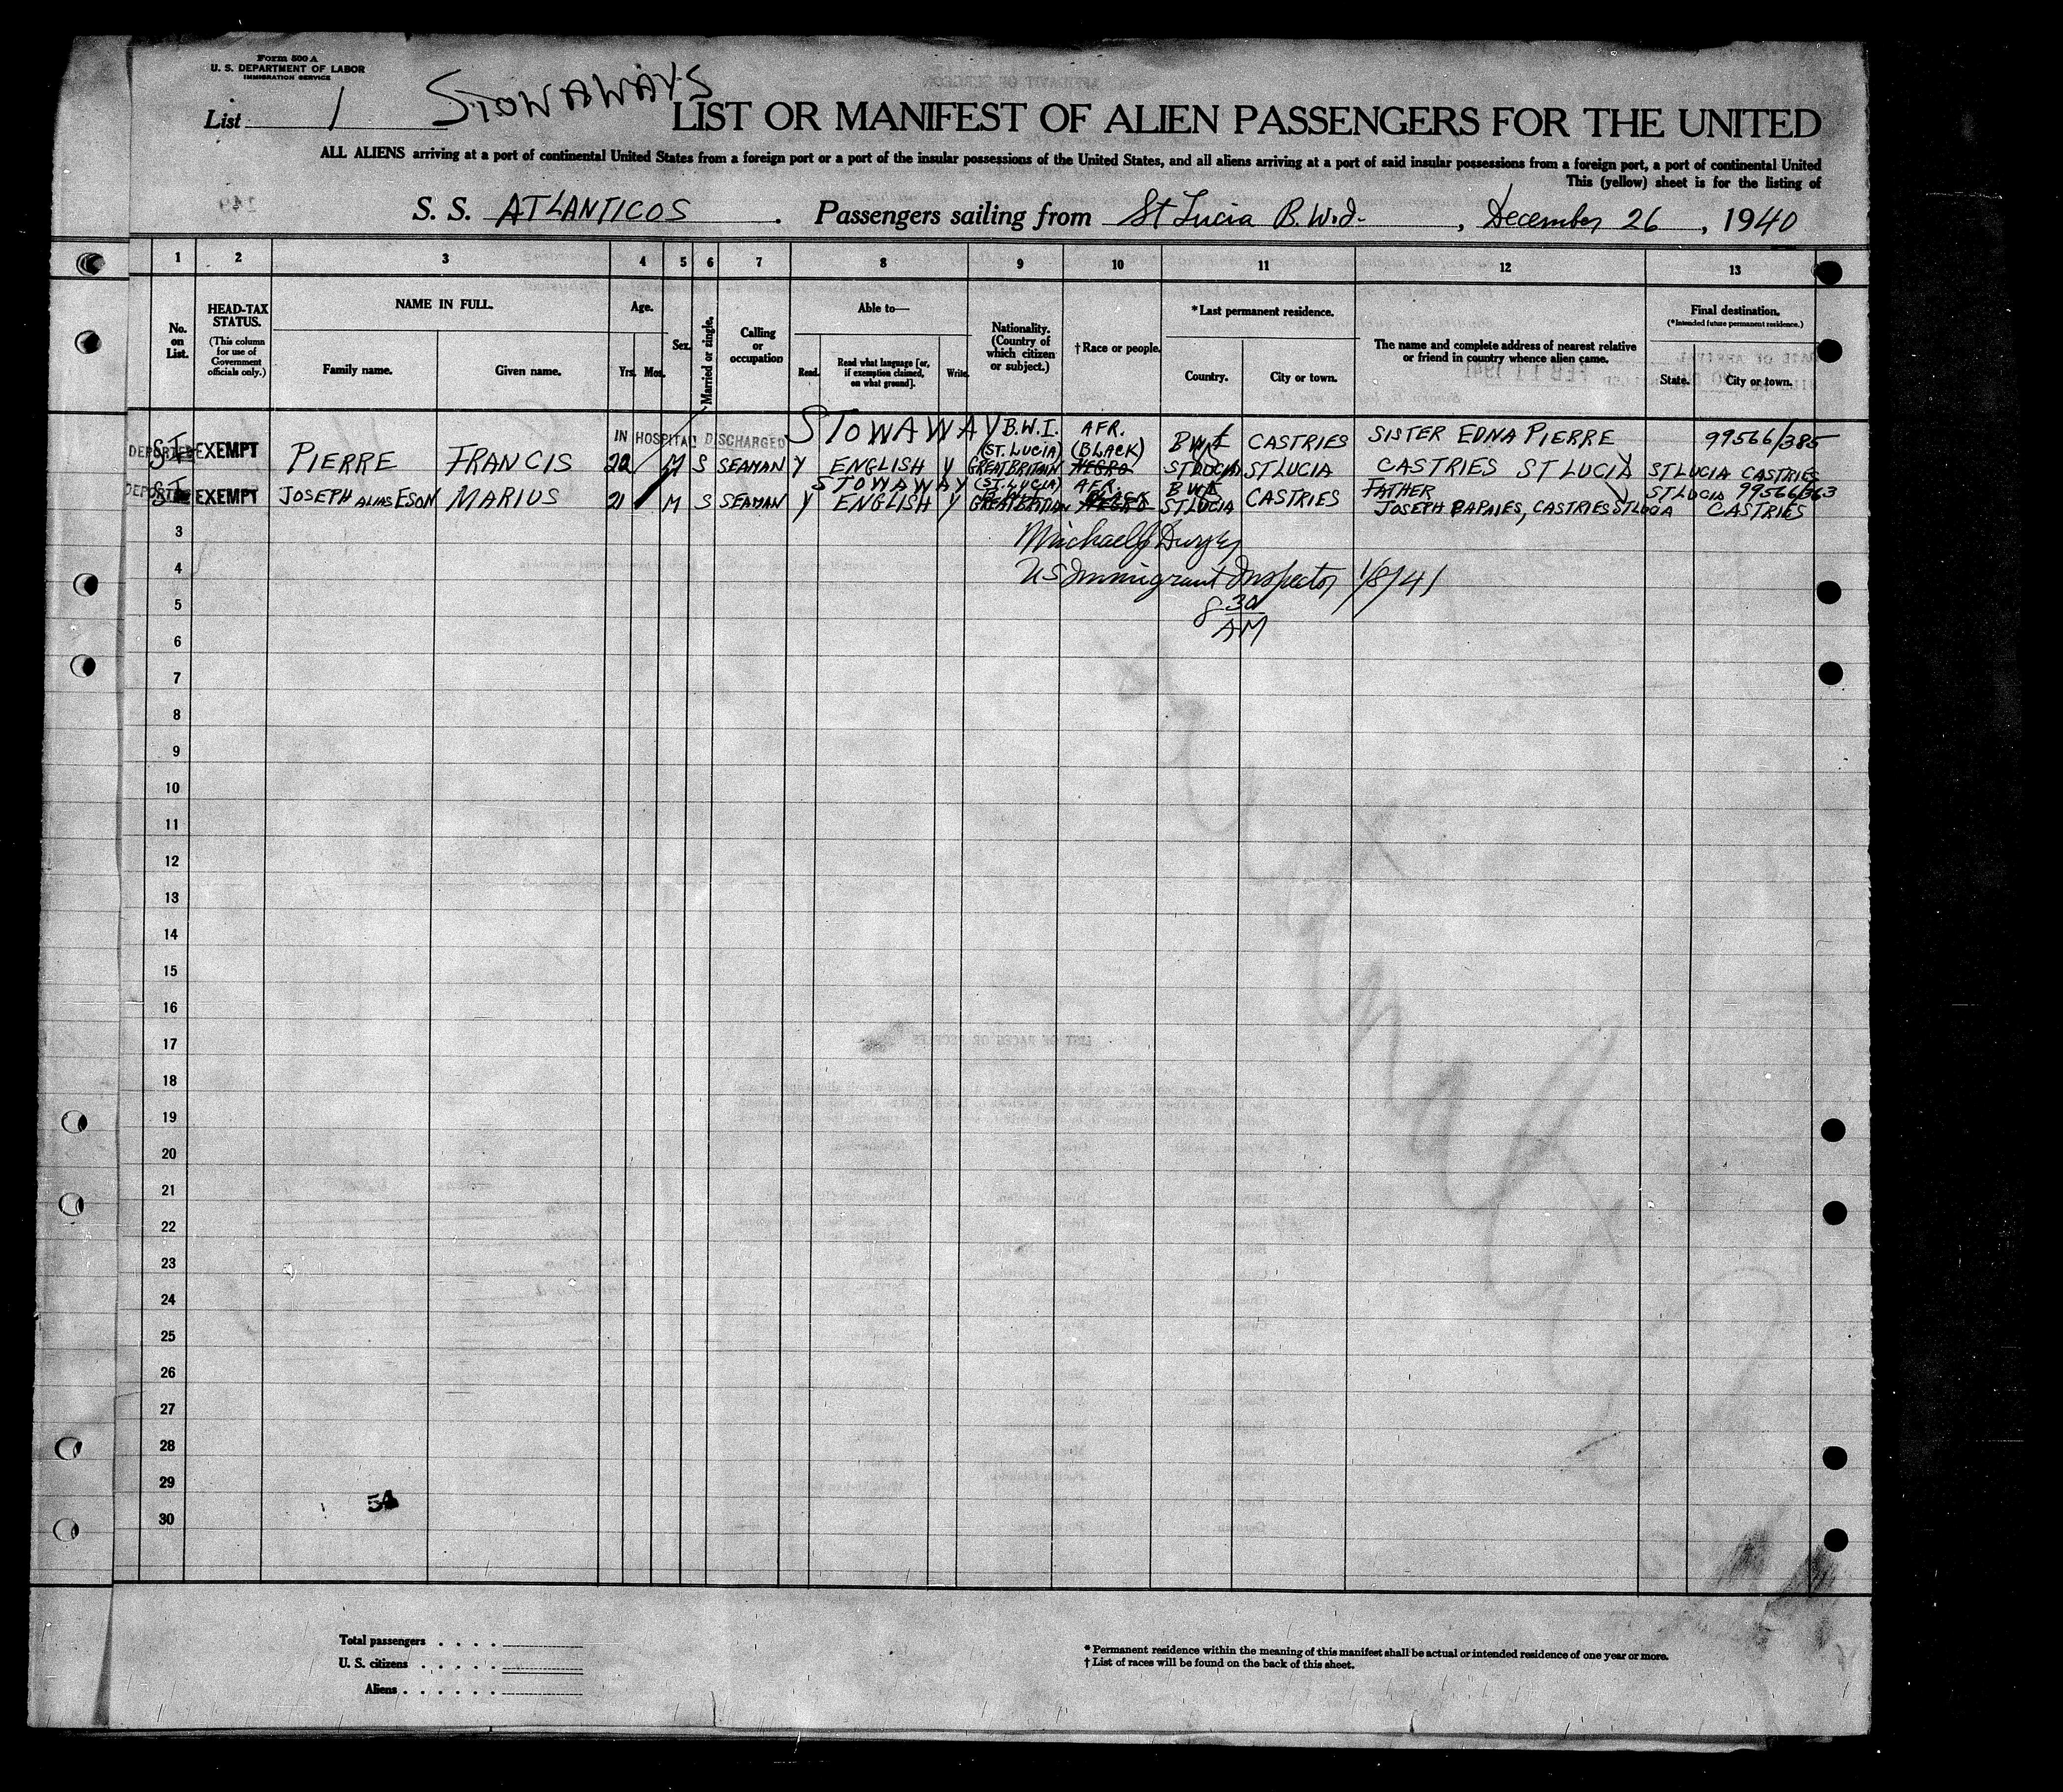 Form 500 A
U. S. DEPARTMENT OF LABOR
IMMIGRATION SERVICE
List 1
STOWAWAYS
LIST OR MANIFEST OF ALIEN PASSENGERS FOR THE UNITED
ALL ALIENS arriving at a port of continental United States from a foreign port or a port of the insular possessions of the United States, and all aliens arriving at a port of said insular possessions from a foreign port, a port of continental United
This (yellow) sheet is for the listing of
S. S. ATLANTICOS . Passengers sailing from St Lucia B.W.I. , December 26 , 1940
1 2 3 4 5 6 7 8 9 10 11 12 13
No. on List.
HEAD-TAX STATUS.
(This column for use of Government officials only.)
NAME IN FULL.
Family name. Given name.
Age.
Yrs. Mos.
Sex.
Married or single.
Calling or occupation
Able to—
Read. Read what language [or, if exemption claimed, on what ground]. Write.
Nationality. (Country of which citizen or subject.)
† Race or people.
* Last permanent residence.
Country. City or town.
The name and complete address of nearest relative or friend in country whence alien came.
Final destination.
(* Intended future permanent residence.)
State. City or town.
IN HOSPITAL DISCHARGED STOWAWAY B.W.I. AFR. BWI CASTRIES SISTER EDNA PIERRE 99566/385
DEPORTED SI EXEMPT (ST. LUCIA) (BLACK)
PIERRE FRANCIS 22 M S SEAMAN Y ENGLISH Y GREAT BRITAIN NEGRO ST LUCIA ST LUCIA CASTRIES ST LUCIA ST LUCIA CASTRIES
STOWAWAY (ST. LUCIA) AFR. BWI FATHER ST LUCIA 99566/363
DEPORTED SI EXEMPT JOSEPH ALIAS ESON MARIUS 21 M S SEAMAN Y ENGLISH Y GREAT BRITAIN BLACK NEGRO ST LUCIA CASTRIES JOSEPH PAPAIES, CASTRIES ST LUCIA CASTRIES
3
Michael J Dwyer
4
US Immigrant Inspector 1/8/41
5
8 30
AM
6
7
8
9
10
11
12
13
14
15
16
17
18
19
20
21
22
23
24
25
26
27
28
29
30
Total passengers . . . .
U. S. citizens . . . . .
Aliens . . . . . .
* Permanent residence within the meaning of this manifest shall be actual or intended residence of one year or more.
† List of races will be found on the back of this sheet.